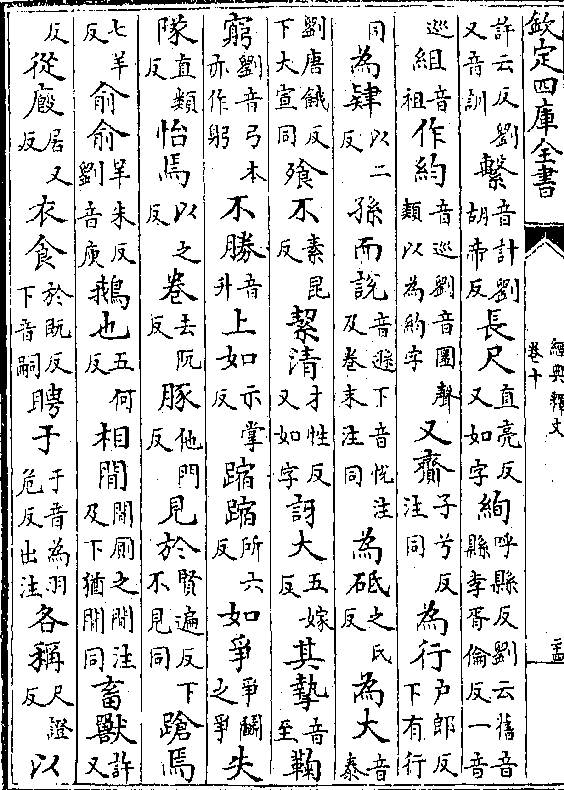 欽定四庫全書
經典釋文
卷十
許云反劉又音訓繫音計劉胡帝反長尺直亮反又如字絢呼縣反劉云舊音縣李胥倫反一音
巡組音祖作約音巡劉音圜聲類以為約字又齊子兮反注同為行戶郎反下有行
同為肄以二反孫而說音遜下音悅注及卷末注同為砥之氏反為大音泰
劉唐餓反下大宣同飧不素昆反絜清才性反又如字訝大五嫁反其摯音至鞠
窮劉音弓本亦作躬不勝音升上如示掌反蹜蹜所六反如爭爭鬭之爭失
隊直類反怡焉以之反卷去阮反豚他門反見於賢遍反下不見同蹌焉
七羊反俞俞羊朱反劉音庾鵝也五何反相間間厠之間注及下猶間同畜獸許又
反從廄居又反衣食於既反下音嗣聘于于音為羽危反出注各稱尺證反以